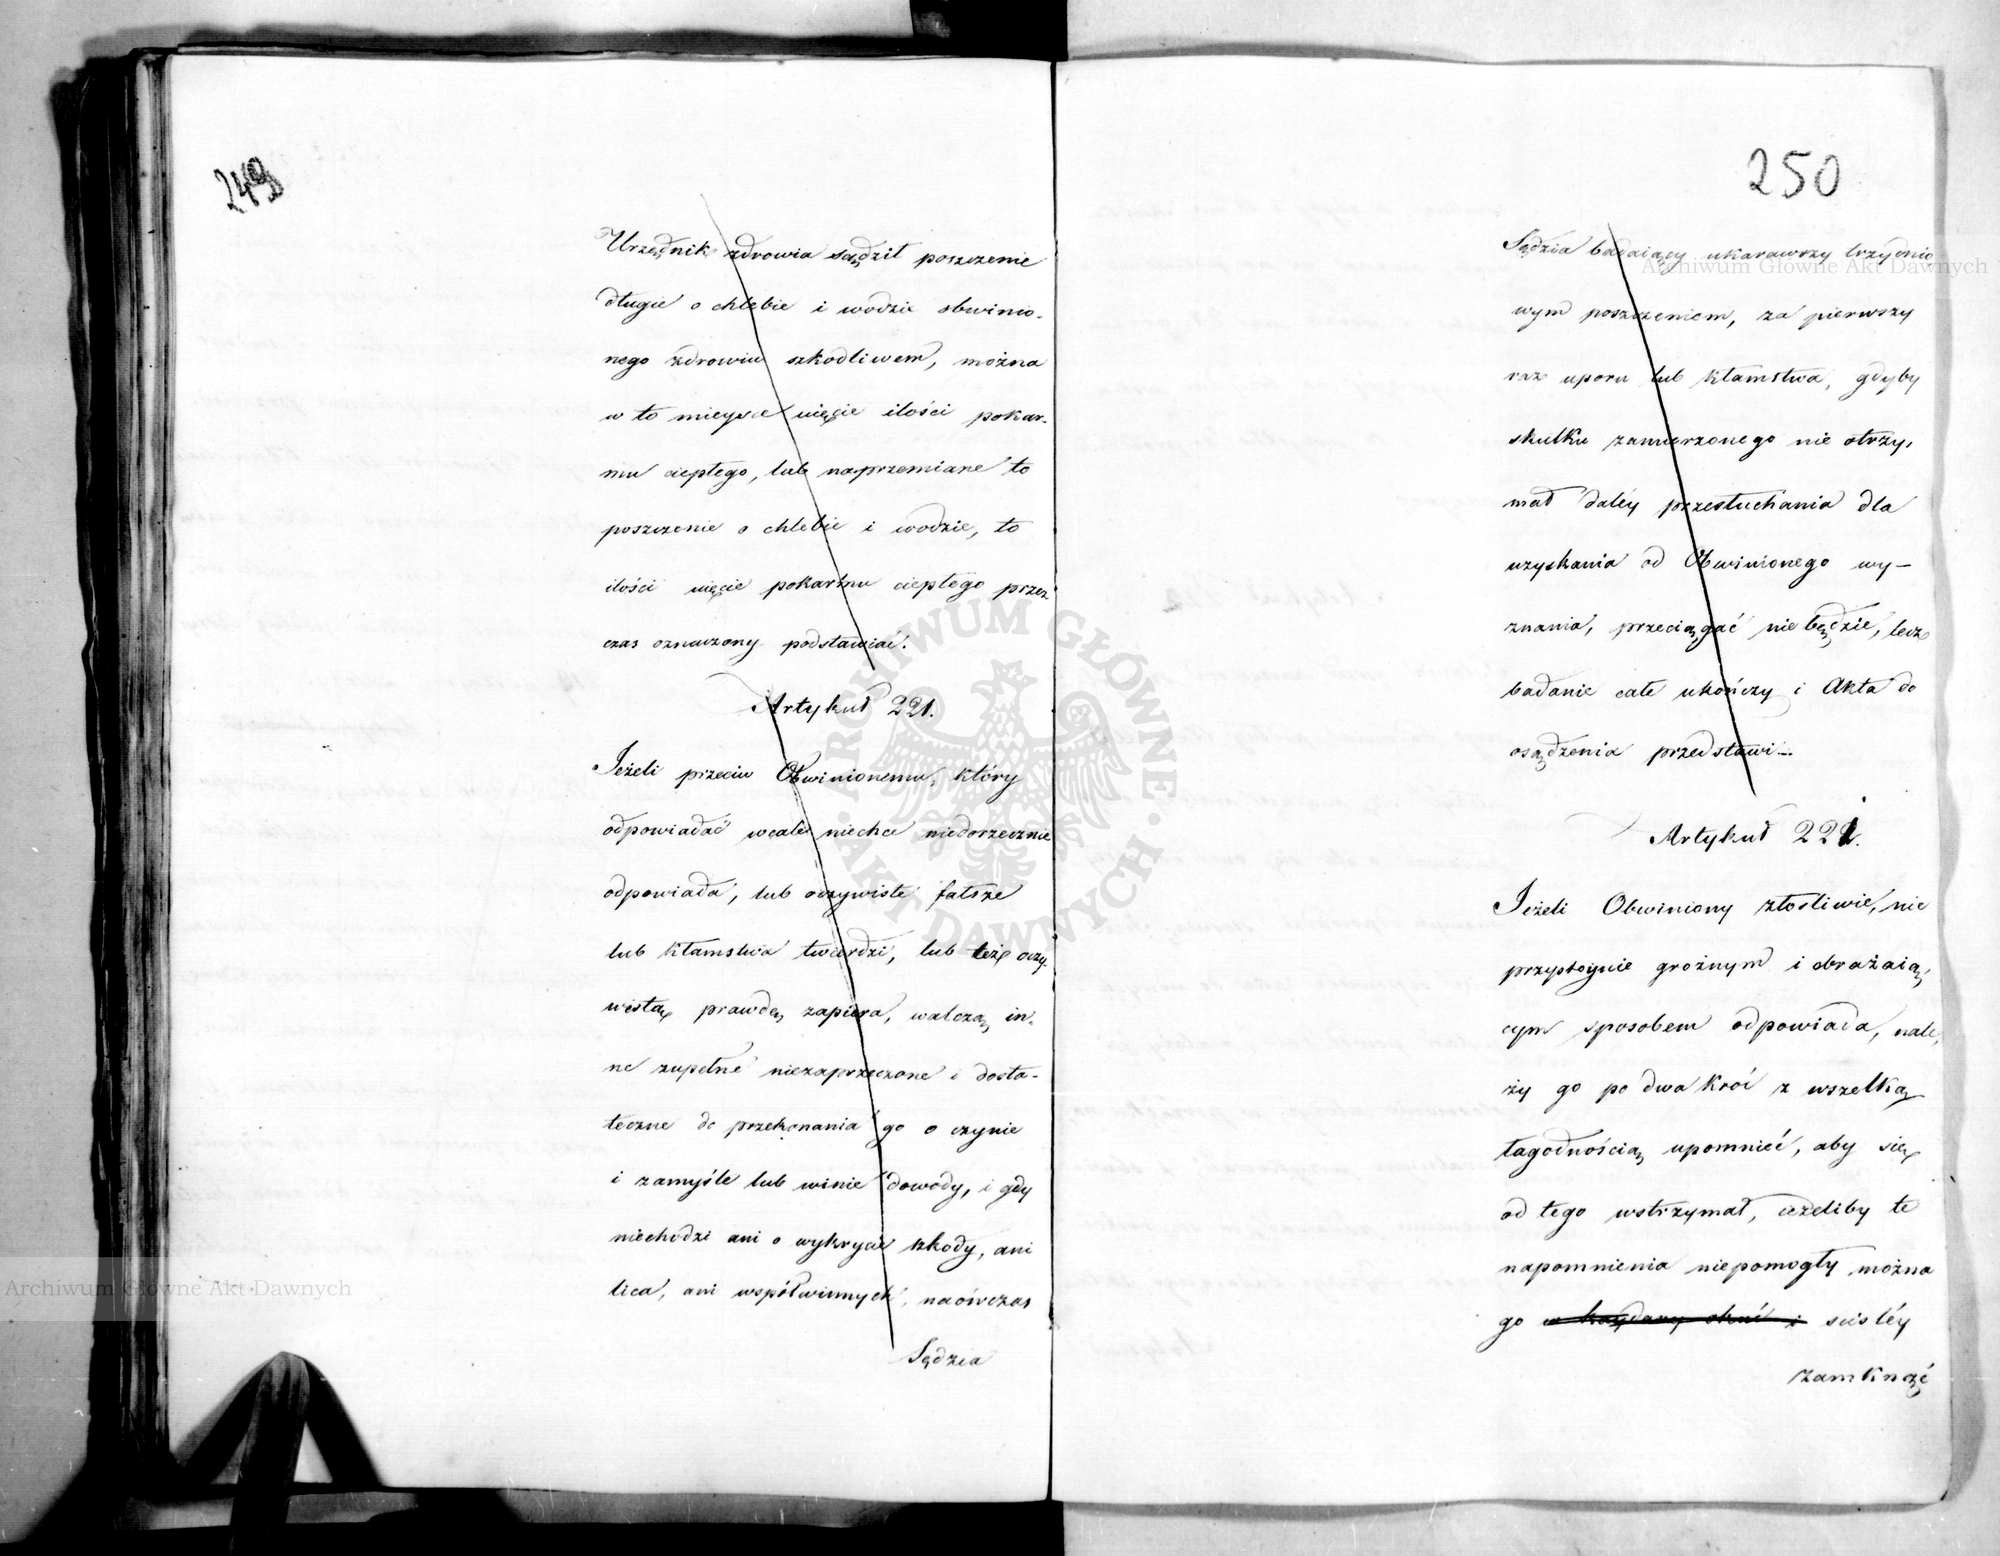 249
Urzędnik zdrowia sądził poszczenie
długie o chlebie i wodzie obwinio-
nego zdrowiu szkodliwem, można
w to mieysce więcie ilości pokar-
mu ciepłego, lub naprzemiane to
poszczenie o chlebie i wodzie, to
ilości więcie pokarmu ciepłego przez
czas oznaczony podstawiać.
Artykuł 221.
Jeżeli przeciw Obwinionemu, który
odpowiadać wcale niechce niedorzecznie
odpowiada, lub oczywiste fałsze
lub kłamstwa twierdzi, lub też oczy-
wistą prawdę zapiera, walczą in-
ne zupełne niezaprzeczone i dosta-
teczne do przekonania go o czynie
i zamyśle lub winie dowody, i gdy
niechodzi ani o wykrycie szkody, ani
lica, ani współwinnych, naówczas
Sędzia
250
Sędzia badaiący ukarawszy trzydnio
wym poszczeniem, za pierwszy
raz uporu lub kłamstwa, gdyby
skutku zamierzonego nie otrzy-
mał daléy przesłuchania dla
uzyskania od Obwinionego wy-
znania, przeciągać nie będzie, lecz
badanie całe ukończy i Akta do
osądzenia przedstawi.
Artykuł 221.
Jeżeli Obwiniony złośliwie, nie
przystoynie groźnym i obrażaią-
cym sposobem odpowiada, nale-
ży go po dwa kroć z wszelką
łagodnością upomnieć, aby się
od tego wstrzymał, ieżeliby te
napomnienia niepomogły można
go w kaydany okuć i ściśléy
zamknąć
Archiwum Główne Akt Dawnych
Archiwum Główne Akt Dawnych
ARCHIWUM GŁÓWNE AKT DAWNYCH